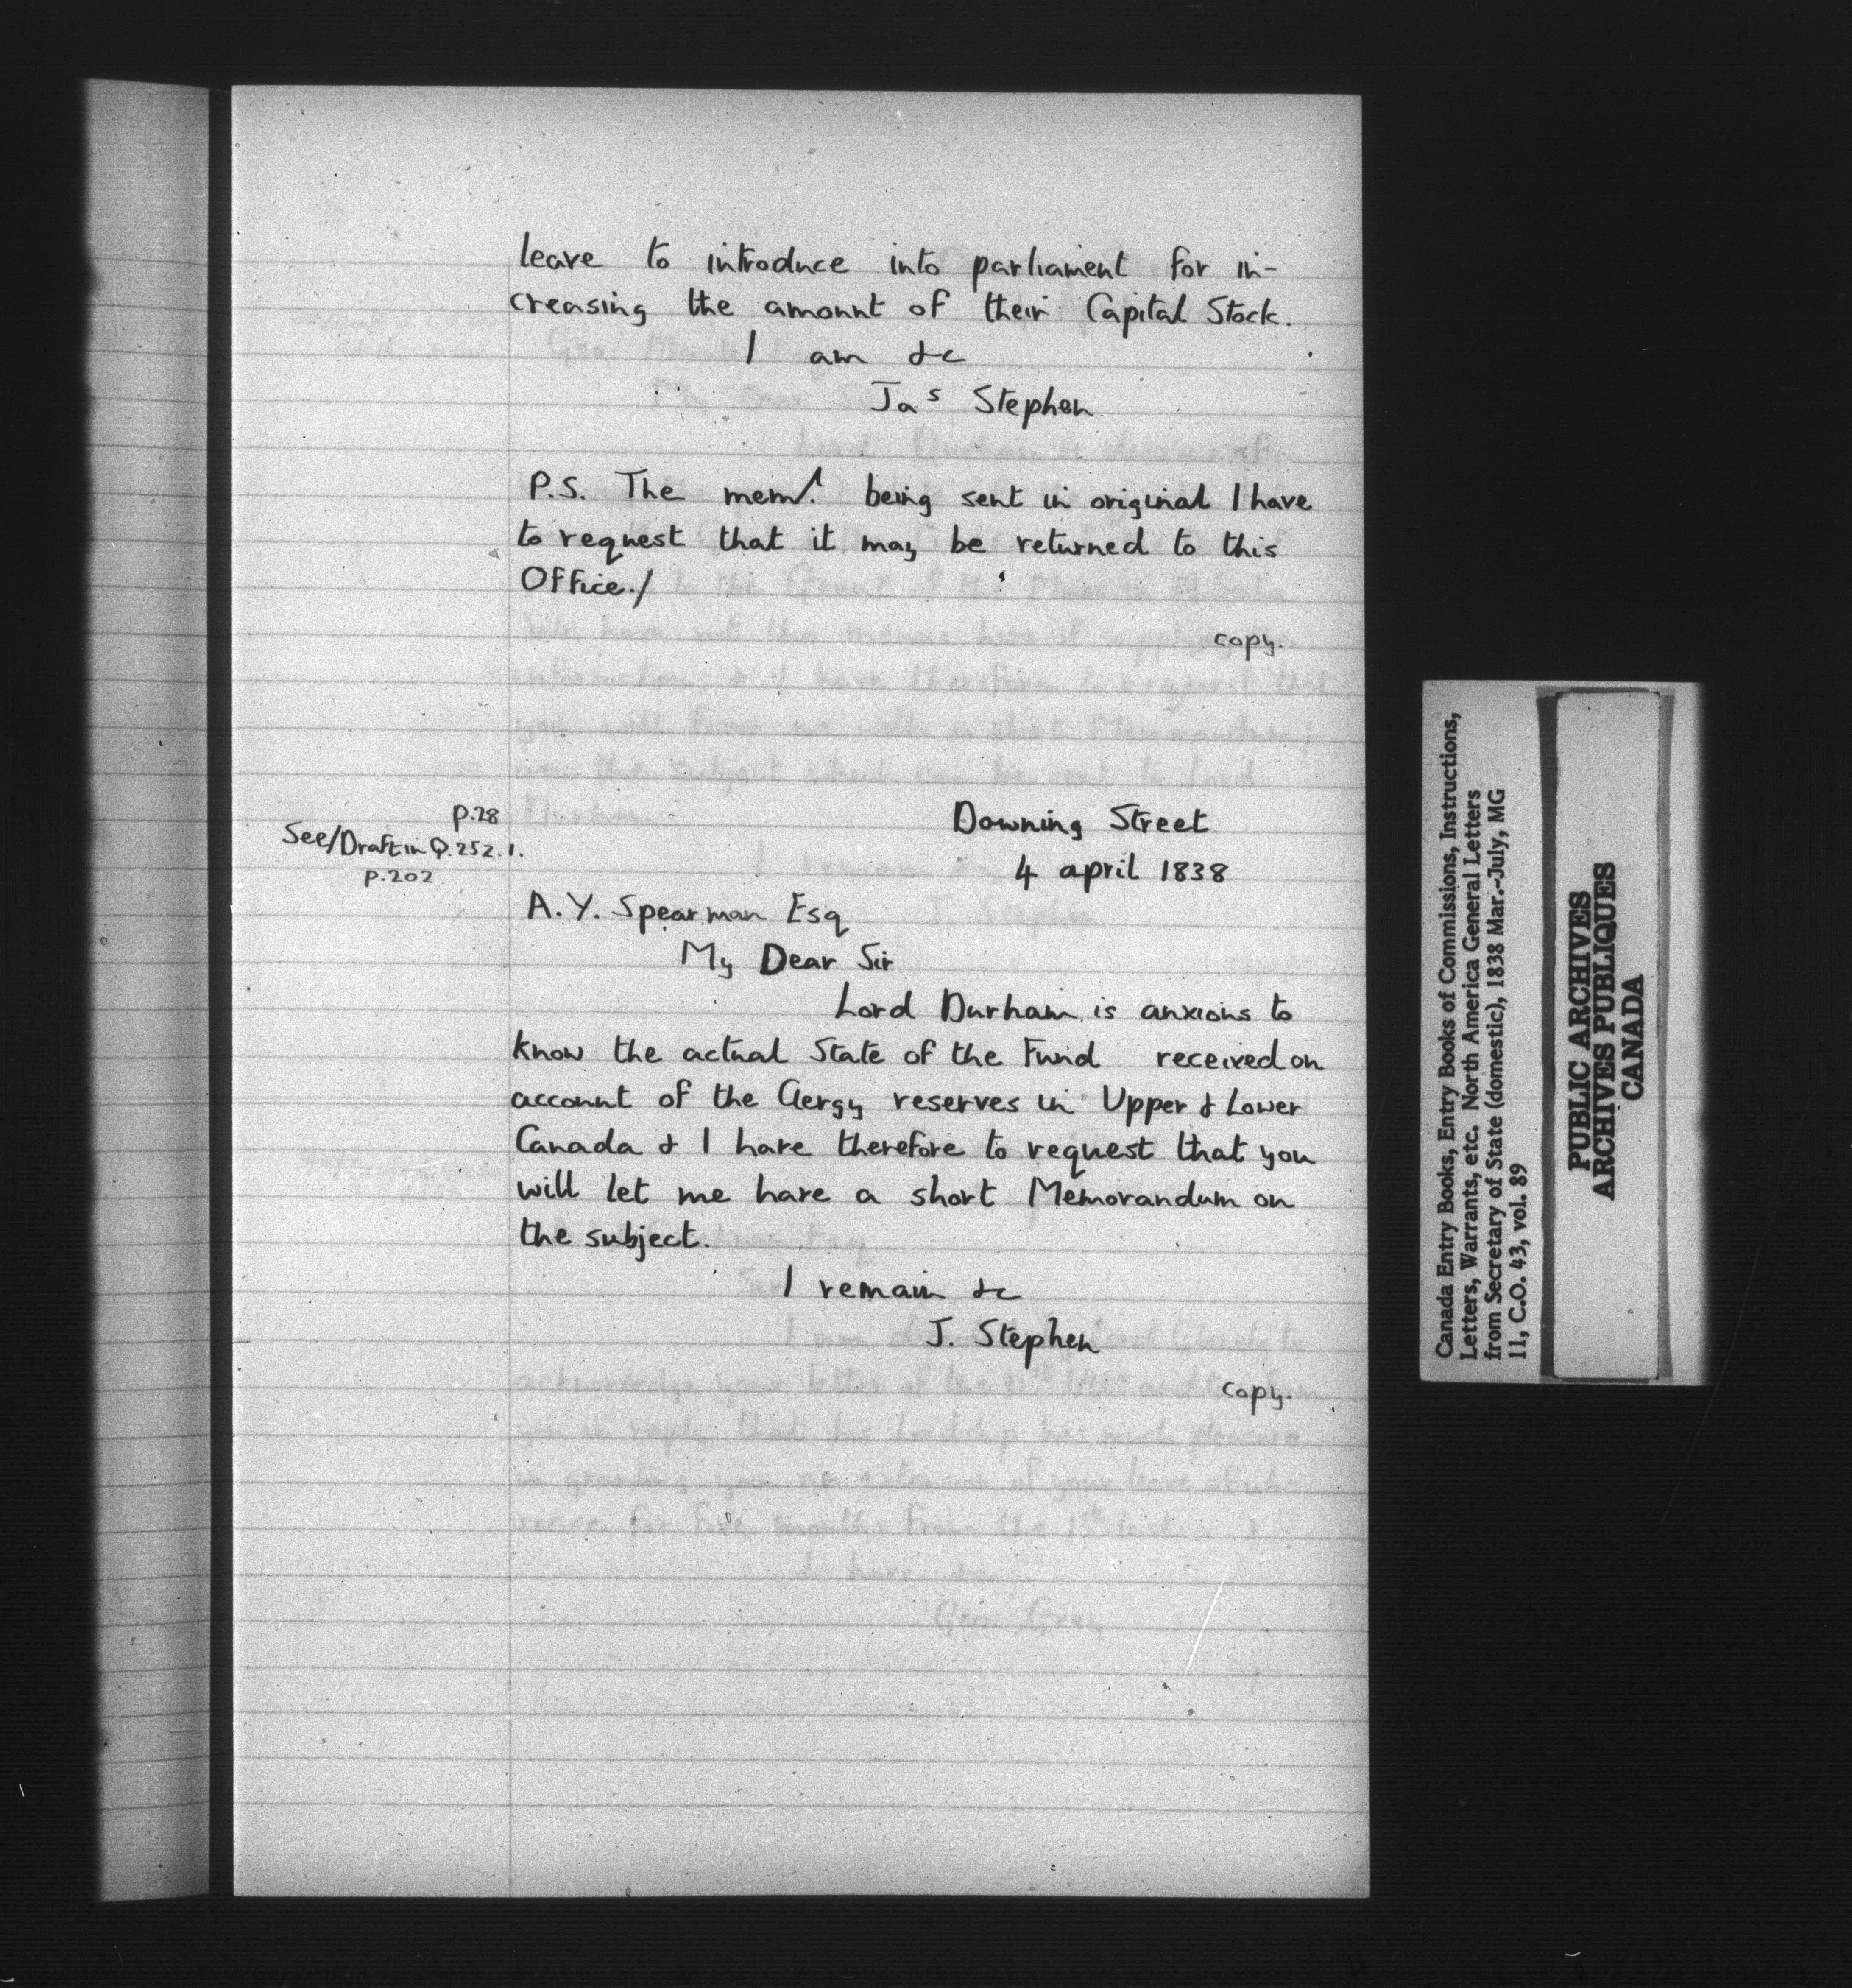 leave to introduce into parliament for in-
creasing the amount of their Capital Stock.
I am &c
Jas Stephen
P.S. The meml. being sent in original I have
to request that it may be returned to this
Office./
copy.
p.28
See/Draft in Q.252.1.
p.202
Downing Street
4 april 1838
A.Y. Spearman Esq
My Dear Sir
Lord Durham is anxious to
know the actual State of the Fund received on
account of the Clergy reserves in Upper & Lower
Canada & I have therefore to request that you
will let me have a short Memorandum on
the subject.
I remain &c
J. Stephen
copy.
Canada Entry Books, Entry Books of Commissions, Instructions,
Letters, Warrants, etc. North America General Letters
from Secretary of State (domestic), 1838 Mar.-July, MG
11, C.O. 43, vol. 89
PUBLIC ARCHIVES
ARCHIVES PUBLIQUES
CANADA